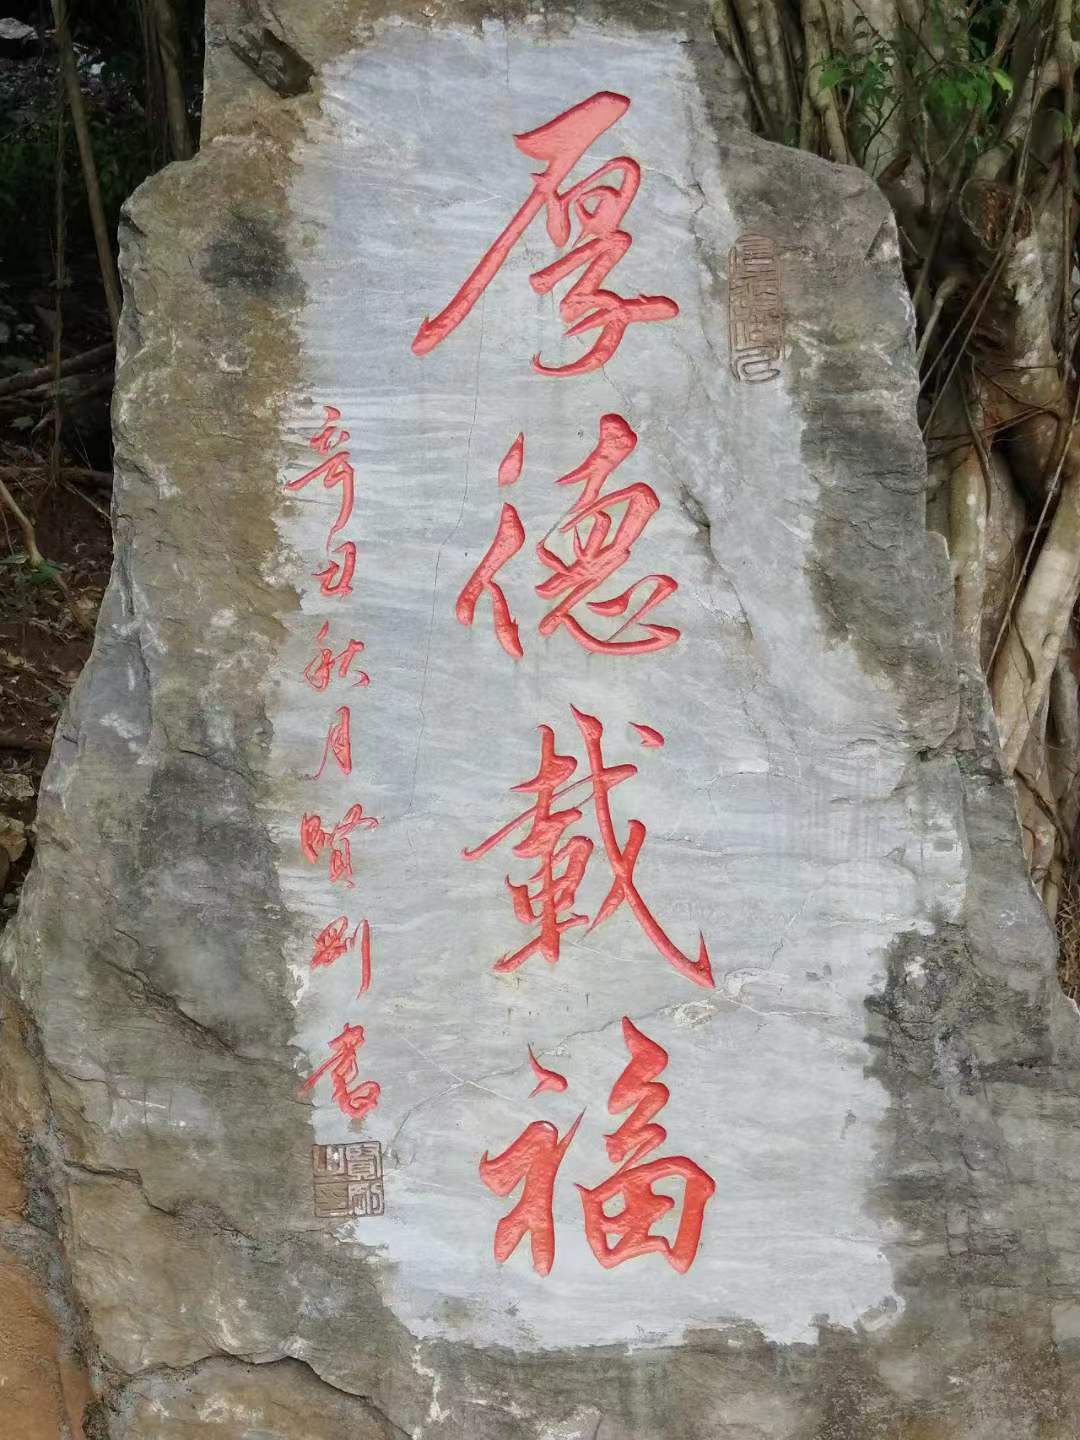 厚德载福
辛丑秋月贤刚书